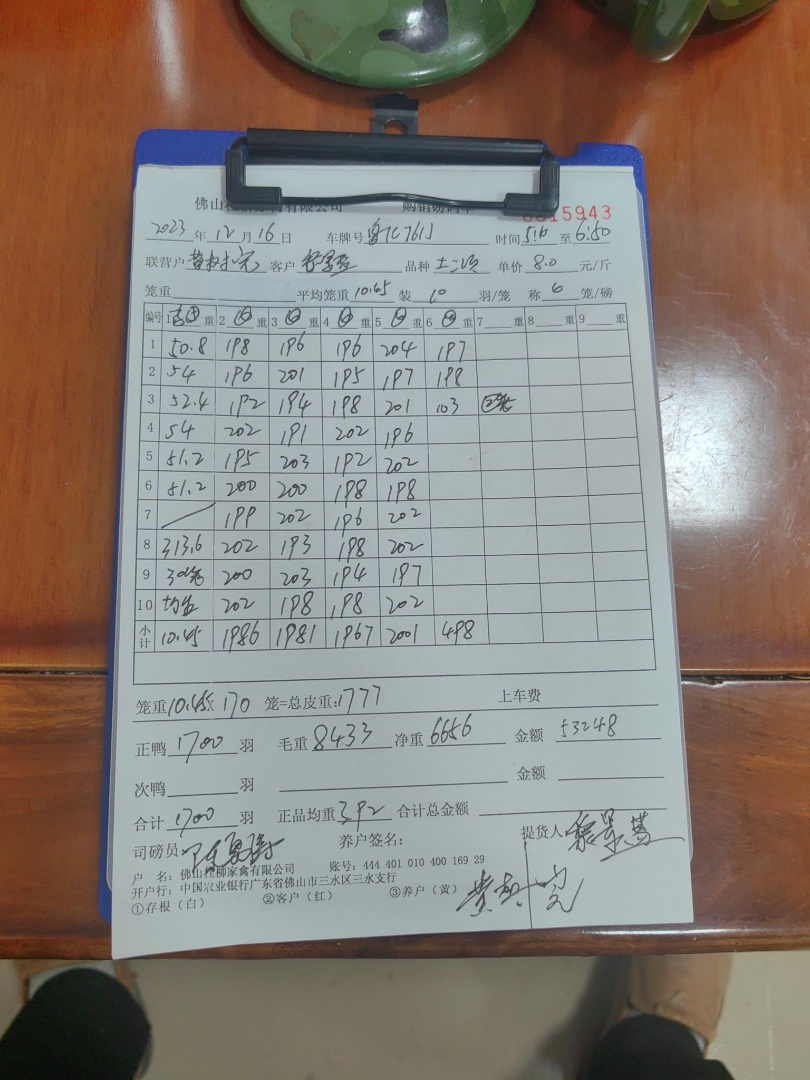 佛山 有限公司 购销磅码单 15943
2023 年 12 月 16 日 车牌号 粤 时间 5:10 至 6:50
联营户 客户 品种 土二 单价 8.0 元/斤
笼重 平均笼重 10.45 装 10 羽/笼 称 6 笼/磅
编号 1 重 2 重 3 重 4 重 5 重 6 重 7 重 8 重 9 重
1 50.8 198 196 196 204 197
2 54 196 201 195 197 198
3 52.4 192 194 198 201 103
4 54 202 191 202 196
5 51.2 195 203 192 202
6 51.2 200 200 198 198
7 199 202 196 202
8 313.6 202 193 198 202
9 30笼 200 203 194 197
10 均 202 198 198 202
小计 10.45 1986 1981 1967 2001 498
笼重 10.45 x 170 笼=总皮重: 1777 上车费
正鸭 1700 羽 毛重 8433 净重 6656 金额 53248
次鸭 羽 金额
合计 1700 羽 正品均重 3.92 合计总金额
司磅员 养户签名: 提货人
户 名: 佛山桂柳家禽有限公司 账号: 444 401 010 400 169 29
开户行: 中国农业银行广东省佛山市三水区三水支行
①存根(白) ②客户(红) ③养户(黄)